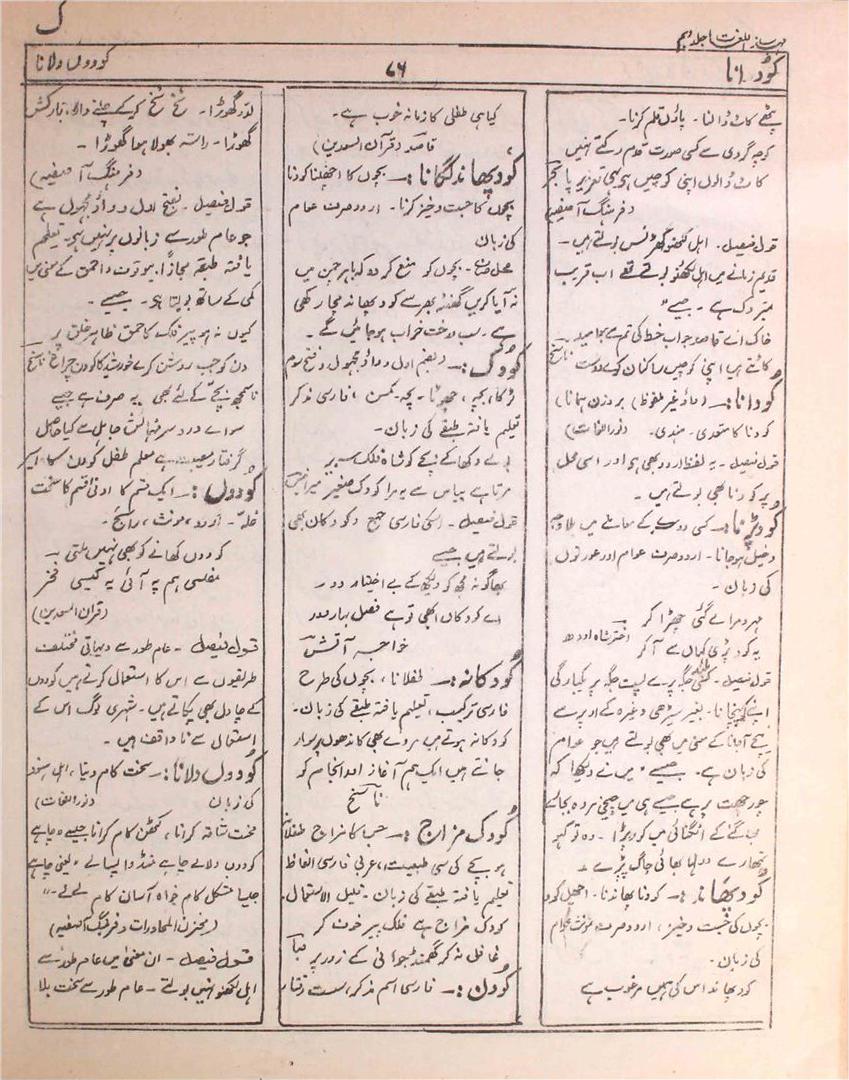 ک
مہذب اللغات جلد دہم
کُودانا
۷۶
کودوں دلانا
پٹھے کاٹ ڈالنا۔ پاؤں قلم کرنا۔
کوچہ گردی سے کسی صورت قدم رکتے نہیں
کاٹ ڈالوں اپنی کوچیں ہو یہی تعزیر پا
فرہنگ آصفیہ
قول فیصل۔ اہل لکھنؤ گھڑنس بولتے ہیں۔
قدیم زمانے میں اہل لکھنؤ بولتے تھے اب قریب
بمتروک ہے۔ جیسے
خاک اے قاصد جواب خط کی تم سے ہو امید
کاٹتے ہیں اپنی کوچیں ساکنان کوے دوست ناسخ
کودانا:۔ (واؤ غیر ملفوظ) بروزن ہمانا)
کودنا کا متعدی۔ ہندی۔ (نور اللغات)
قول فیصل۔ یہ لفظ اردو بھی ہو اور اسی محل
پر کودنا بھی بولتے ہیں۔
کود پڑنا:۔ کسی دوسرے کے معاملے میں بلا وجہ
دخیل ہو جانا۔ اردو صرف عوام اور عورتوں
کی زبان۔
یہ کود پڑی کہاں سے آ کر اختر شاہ اودھ
قول فیصل۔ کسی جگہ پر سے لپٹ جگہ پر یکبارگی
اپنے کو پہنچانا۔ بغیر سیڑھی وغیرہ کے اوپر سے
نیچے آجانا کے معنی میں بھی بولتے ہیں جو عوام
کی زبان ہے۔ جیسے "میں نے دیکھا کہ
چور چھت پر ہے جیسے ہی میں چیخی مردہ بجائے
بھاگنے کے انگنائی میں کود پڑا۔ وہ تو کہو
تمھارے دولھا بھائی جاگ پڑے۔
کود پھاند:۔ کودنا پھاندنا۔ اچھل کود
بچوں کی جست و خیز، اردو صرف، مونث، عوام
کی زبان۔
کود پھاند اس کی ہمیں مرغوب ہے
کیا ہی طفلی کا زمانہ خوب ہے۔
قاصد (قرآن السعدین)
کود پھاند لگانا:۔ بچوں کا اچھلنا کودنا
بچوں کا جست و خیز کرنا۔ اردو صرف عوام
کی زبان
محل صرف۔ بچوں کو منع کر دو کہ باہر چمن میں
نہ آیا کریں گھنٹہ بھر سے کود پھاند مچا رکھی
ہے۔ سب درخت خراب ہو جائیں گے۔
کُودک:۔ (بضم اول و واؤ مجہول و فتح سوم
لڑکا، بچہ، چھوٹا۔ بچہ۔ کمسن، فارسی مذکر
تعلیم یافتہ طبقے کی زبان۔
بولے دکھا کے بچے کو شاہ فلک سریر
مرتا ہے پیاس سے یہ مرا کودک صغیر میر انیس
قول فیصل۔ اسکی فارسی جمع۔ کودکان بھی
بولتے ہیں جیسے
بھاگو نہ مجھ کو دیکھ کے بے اختیار دور
اے کودکاں ابھی تو ہے فصل بہار دور
خواجہ آتش
کودکانہ:۔ طفلانا، بچوں کی طرح
فارسی ترکیب، تعلیم یافتہ طبقے کی زبان۔
کودکانہ ہوتے ہیں مردے بھی کاندھوں پر سوار
جانتے ہیں ایک ہم آغاز اور انجام کو
ناسخ
کودک مزاج:۔ جس کا مزاج طفلانہ
ہو بچے کی سی طبیعت، عربی فارسی الفاظ
تعلیم یافتہ طبقے کی زبان۔ قلیل الاستعمال
کودک مزاج ہے فلک پیر خون کر
غافل نہ کر گھمنڈ جوانی کے زور پر صبا
کودن:۔ فارسی اسم مذکر، سست رفتار
لدو گھوڑا۔ شخ شخ کر کے چلنے والا، بارکش
گھوڑا۔ راستہ بھولا ہوا گھوڑا۔
(فرہنگ آصفیہ)
قول فیصل۔ بفتح اول و واؤ مجہول ہے
جو عام طور سے زبانوں پر نہیں ہو۔ تعلیم
یافتہ طبقہ مجازاً بیوقوف و احمق کے معنی میں
کمی کے ساتھ بولتا ہو۔ جیسے۔
کیوں نہ ہو پیر فلک کا حمق ظاہر خلق پر
دن کو جب روشن کرے خورشید کا کودن چراغ ناسخ
ناسمجھ بچے کے لئے بھی یہ صرف ہے جیسے
سواے درد سر فہمائش جاہل سے کیا حاصل
گرفتار مصیبت ہے معلم طفل کودن کا اسیر
کودوں:۔ ایک قسم کا ادنی قسم کا سخت
غلہ۔ اردو، مونث، رائج۔
کودوں کھانے کو بھی نہیں ملتی
مفلسی ہم پہ آئی یہ کیسی فخر
(قران السعدین)
قول فیصل۔ عام طور سے دیہاتی مختلف
طریقوں سے اس کا استعمال کرتے ہیں کودوں
کے چاول بھی پکاتے ہیں۔ شہری لوگ اس کے
استعمال سے ناواقف ہیں۔
کودوں دلانا:۔ سخت کام دینا، اہل ہنود
کی زبان (نور اللغات)
محنت شاقہ کرانا، کٹھن کام کرانا جیسے "چاہے
کودوں دلالے چاہے منڈوا پسالے" یعنی چاہے
جیسا مشکل کام خواہ آسان کام لے لے۔"
(مخزن المحاورات و فرہنگ آصفیہ)
قول فیصل۔ ان معنی میں عام طور سے
اہل لکھنؤ نہیں بولتے۔ عام طور سے سخت بلا